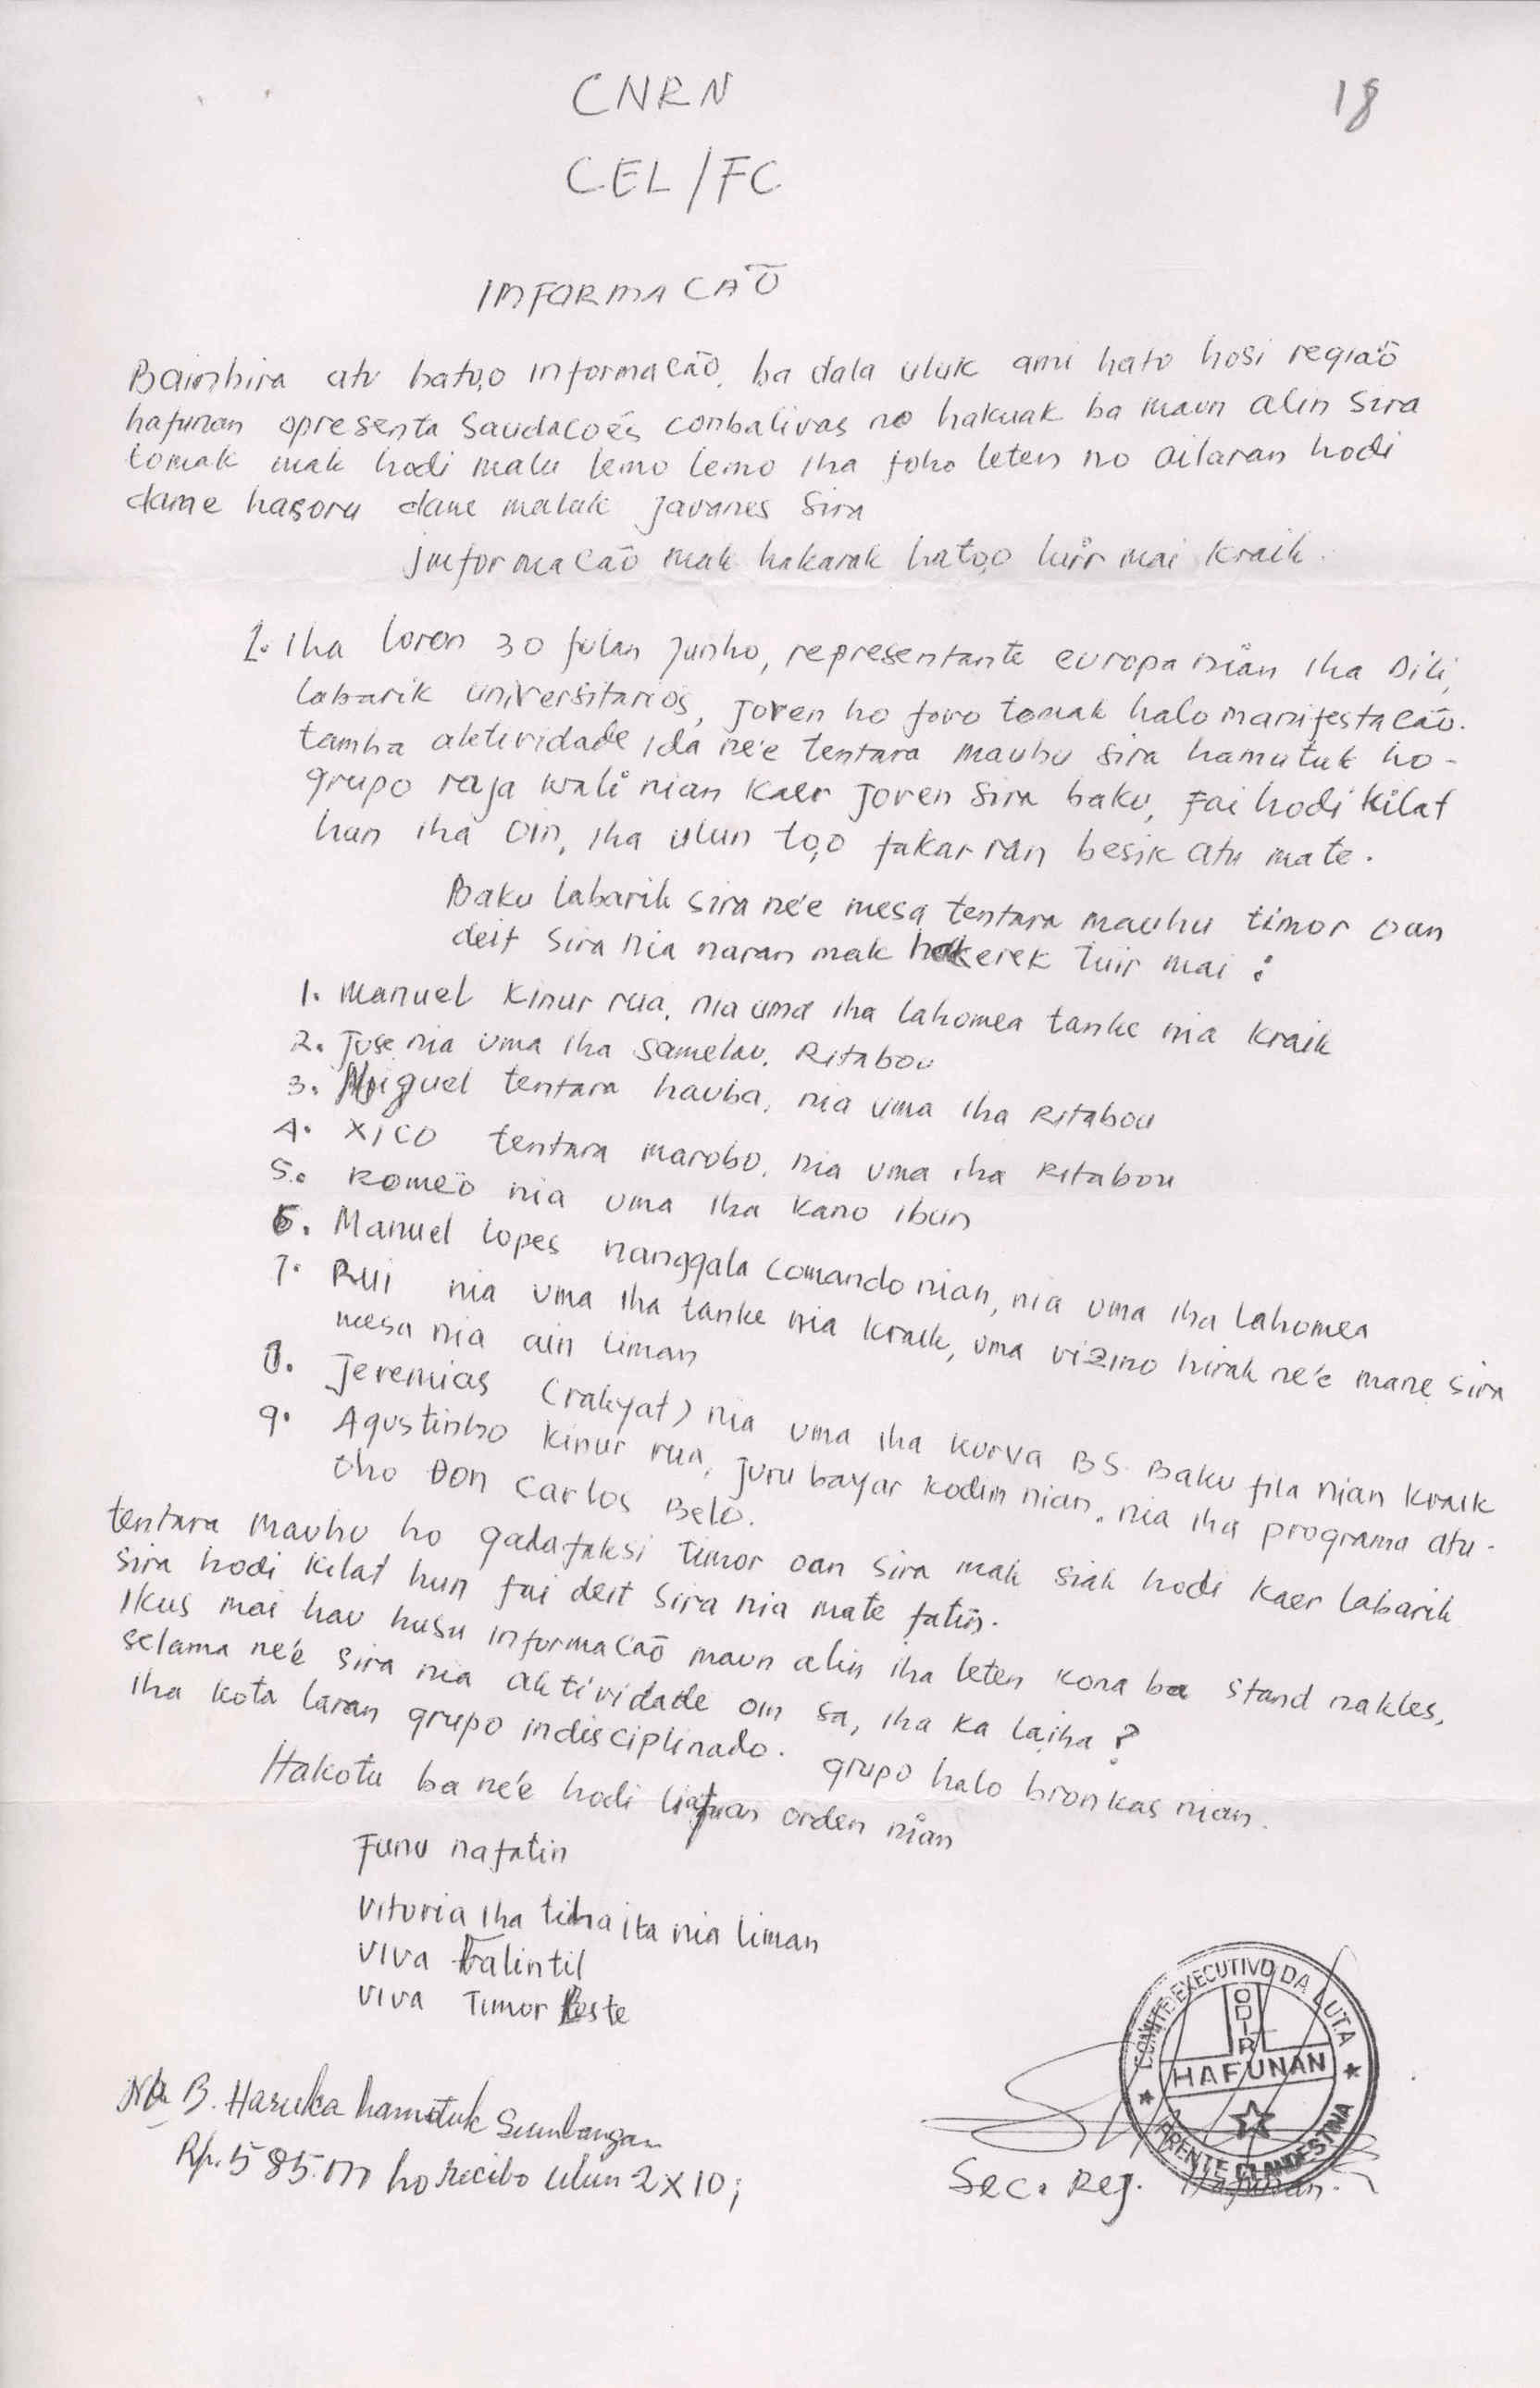 CNRN
18
CEL/FC
INFORMACAÕ
Bainhira atu hato,o informacão, ba dala uluk ami hato hosi regiaõ
hafunan apresenta saudacoés conbativas no hakuak ba maun alin sira
tomak mak hodi malu lemo lemo iha foho leten no ailaran hodi
dame hasoru dame maluk javanes sira
jnformacão mak hakarak hato,o tuir mai kraik.
1. iha loron 30 fulan junho, representante europa nian iha Dili,
labarik universitarios, joven ho fovo tomak halo manifestacão.
tamba aktividade ida ne'e tentara mauhu sira hamutuk ho-
grupo raja wali nian kaer joven sira baku, fai hodi kilat
hun iha oin, iha ulun to,o fakar ran besik atu mate.
Baku labarik sira ne'e mesa tentara mauhu timor oan
deit sira nia naran mak hakerek tuir mai :
1. Manuel kinur rua, nia uma iha lahomea tanke nia kraik
2. Juse nia uma iha samelau. Ritabou
3. Miguel tentara hauba, nia uma iha Ritabou
4. XICO tentara marobo, nia uma iha Ritabou
5. Romeo nia uma iha kano ibun
6. Manuel lopes nanggala comando nian, nia uma iha lahomea
7. Rui nia uma iha tanke nia kraik, uma vizino hirak ne'e mane sira
mesa nia ain liman
8. Jeremias (rakyat) nia uma iha kurva BS. Baku fila nian kraik
9. Agustinho kinur rua, juru bayar kodim nian. nia iha programa atu-
oho Don Carlos Belo.
tentara mauhu ho gadafaksi timor oan sira mak siak hodi kaer labarik
sira hodi kilat hun fai deit sira nia mate fatin.
Ikus mai hau husu informacaõ maun alin iha leten kona ba stand nakles,
selama ne'e sira nia aktividade oin sa, iha ka laiha ?
iha kota laran grupo indisciplinado. grupo halo bronkas nian.
Hakotu ba ne'e hodi liafuan orden nian
Funu nafatin
Vitoria iha tiha ita nia liman
Viva Falintil
Viva Timor Leste
B. Haruka hamutuk Sumbangan
Rp. 585.000 ho recibo ulun 2 X 10;
COMITE EXECUTIVO DA LUTA
ODIR
HAFUNAN
FRENTE CLANDESTINA
Sec. Rej. Hafunan.